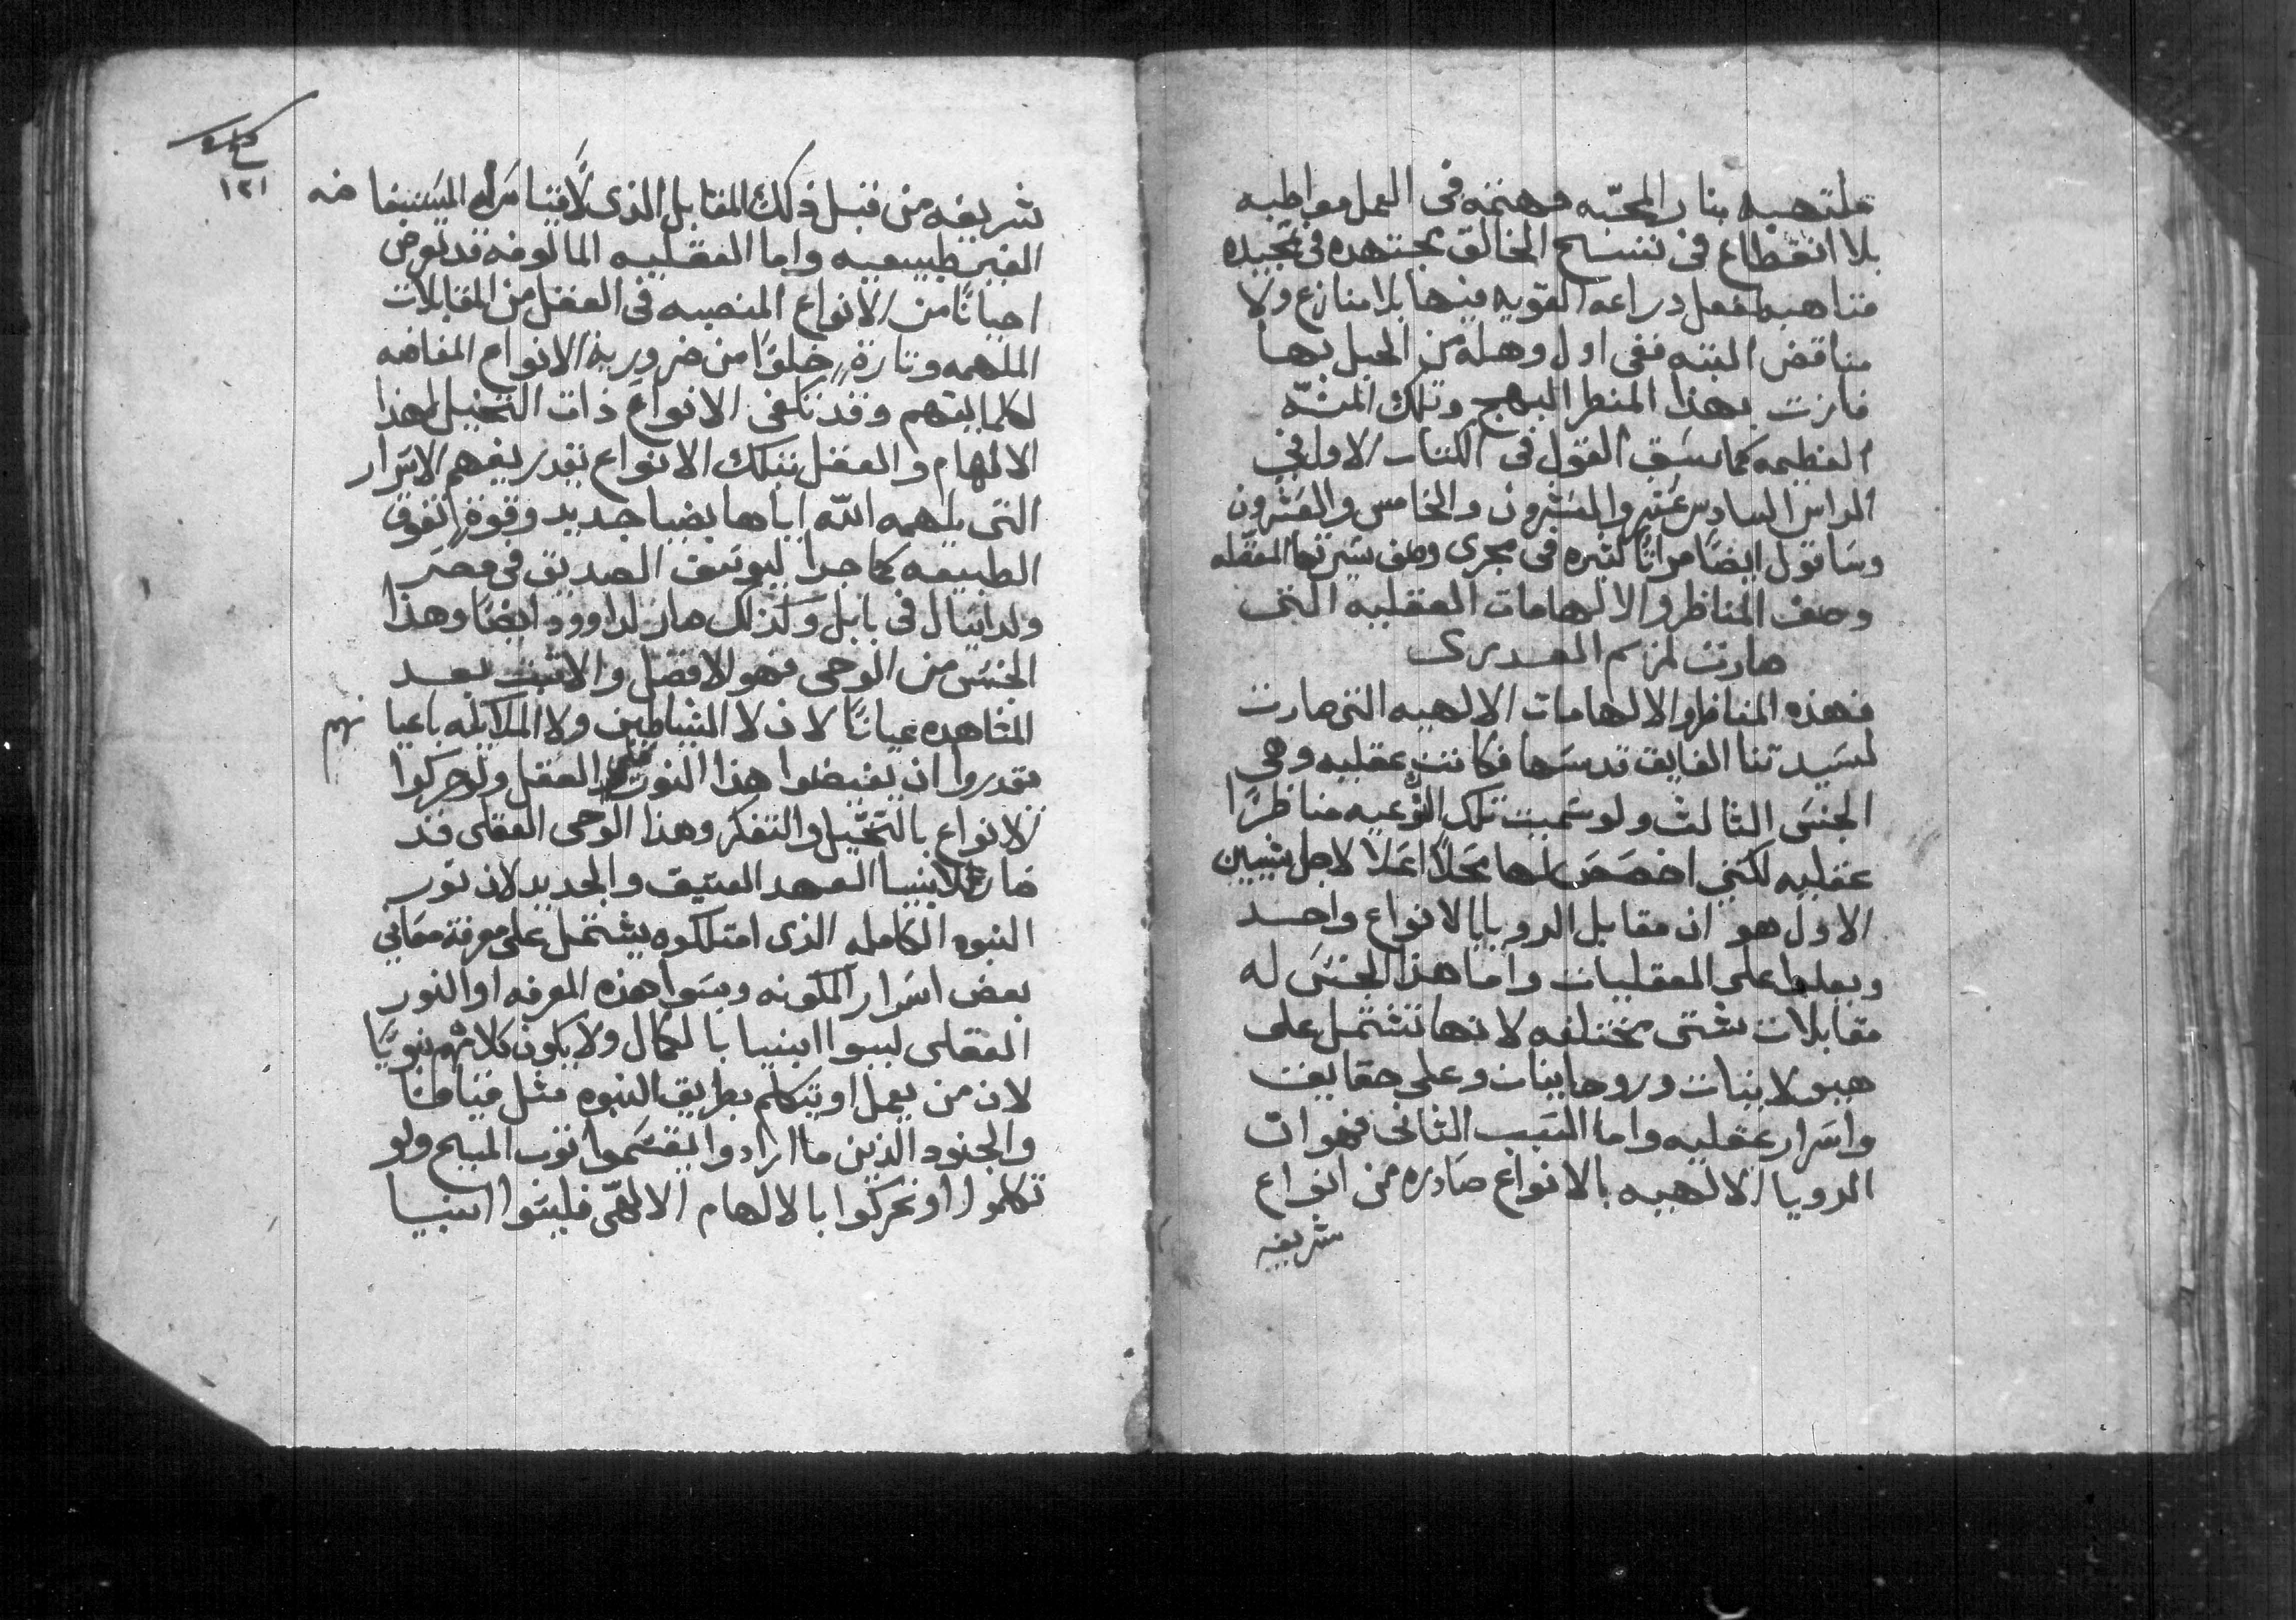 ملتهبه بنار المحبّه مهتمه في العمل مواظبه
بلا انقطاع في تسبيح الخالق مجتهده في تمجيده
متناهبه لفعل دراعه القويه فيها بلا منازع ولا
مناقض البته ففي اول وهله من الحبل بها
فازت بهذا المنظر البهج وتلك المنّه
العظيمه كما سَبق القول في الكتاب الاول في
الراس السادس عَشر والعَشرون والخامس والعَشرون
وسَاقول ايضًا مراتًا كثيره في مجرى وصف سيَرتها المفضله
وصف المناظر والالهامات العقليه التي
صارت لمريم العدرى
فهذه المناظر والالهامات الالهيه التي صارت
لسَيدتنا الفايق قدسَها فكانت عقليه وهي
الجنسَ الثالث ولو سَميت تلك النوعيه مناظرًا
عقليه لكنني اخصَصَ لها محَلاً اعَلا لاجل سَببين
الاول هو ان مقابل الرويا بالانواع واحد
ويعلوا على العقليات واما هذا الجنسَ له
مقابلات شتى مختلفه لانها تشتمل على
هيولانيات وروحانيات وعلى حقايق
واسَرار عقليه واما السَبب الثاني فهو ان
الرويا الالهيه بالانواع صَادره من انواع
شريفه
١٢١
شريفه من قبل ذلك المقابل الذي لاقتنا مَراه المسَتفاضه
الغير طبيعيه واما العقليه المالوفه قد تعرض
احيانًا من الانواع المنصبه في العقل من المقابلات
الملهمه وتارةً خلوًا من ضرورية الانواع المفاضه
لكمالبتهم وقد تكفي الانواع ذات التخيل لهذا
الالهام والعقل بتلك الانواع يقدر يفهم الاسَرار
التي يلهمه الله اياها بضيا جديد وقوة تفوق
الطبيعه كما جرا ليوسَف الصديق في مصَر
ولدانيال في بابل وكذلك صار لداوود ايضًا وهذا
الجنسَ من الوحي فهو الافضل والاثبت بعد
المشاهده عيانًا لان لا الشياطين ولا الملايكه باعيانهم
يقدروا ان يفيضوا هذا النور على العقل ولو حركوا
الانواع بالتخيّل والتفكر وهذا الوحي العقلي قد
صار لانبيا العهد العتيق والجديد لان نور
النبوه الكامله الذي امتلكوه يشتمل على معرفة معَاني
بعض اسَرار المكونه وبسَوا هذه المعرفه او النور
العقلي ليسوا انبيا بالكمال ولا يكون كلامْهم نبويًا
لان من يعمل او يتكلم بطريق النبوه مثل قيافا
والجنود الذين ما ارادوا يقسَموا توب المسيح ولو
تكلموا او تحركوا بالالهام الالهّي فليسَوا انبيا